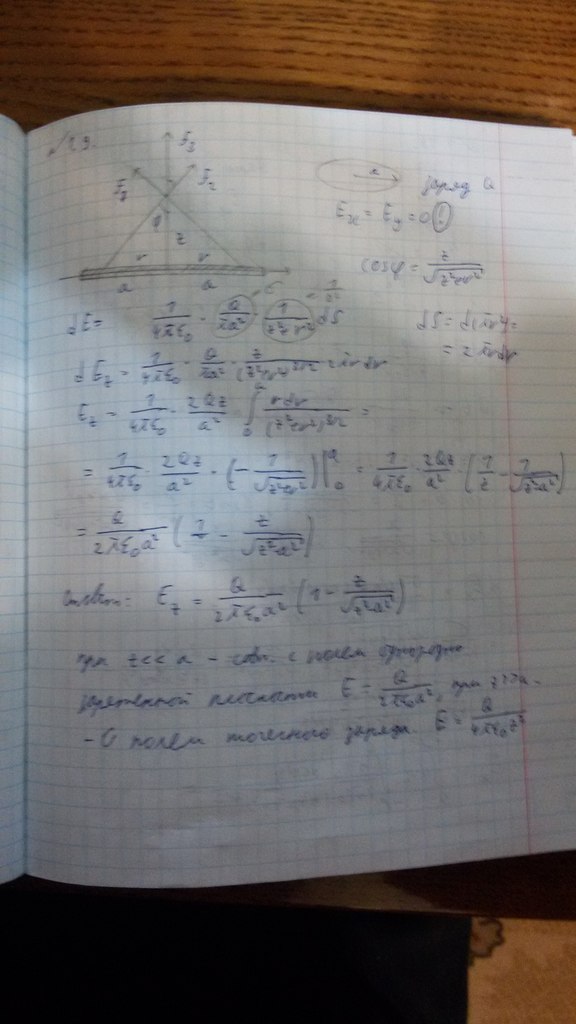 заряд Q
E_x = E_y = 0 !
cosφ = z/√(z²+r²)
dE = 1/(4πε₀) · Q/(πa²) · 1/(z²+r²) dS
dS = d(πr²) =
= 2πrdr
dE_z = 1/(4πε₀) · Q/(πa²) · z/(z²+r²)^(3/2) · 2πrdr
E_z = 1/(4πε₀) · 2Qz/a² ∫₀^a rdr/(z²+r²)^(3/2) =
= 1/(4πε₀) · 2Qz/a² · (−1/√(z²+r²))|₀^a = 1/(4πε₀) · 2Qz/a² · (1/z − 1/√(z²+a²))
= Q/(2πε₀a²) (1 − z/√(z²+a²))
Ответ: E_z = Q/(2πε₀a²) (1 − z/√(z²+a²))
при z<<a – совп. с полем однородно
заряженной плоскости E = Q/(2πε₀a²), при z>>a –
– с полем точечного заряда. E = Q/(4πε₀z²)